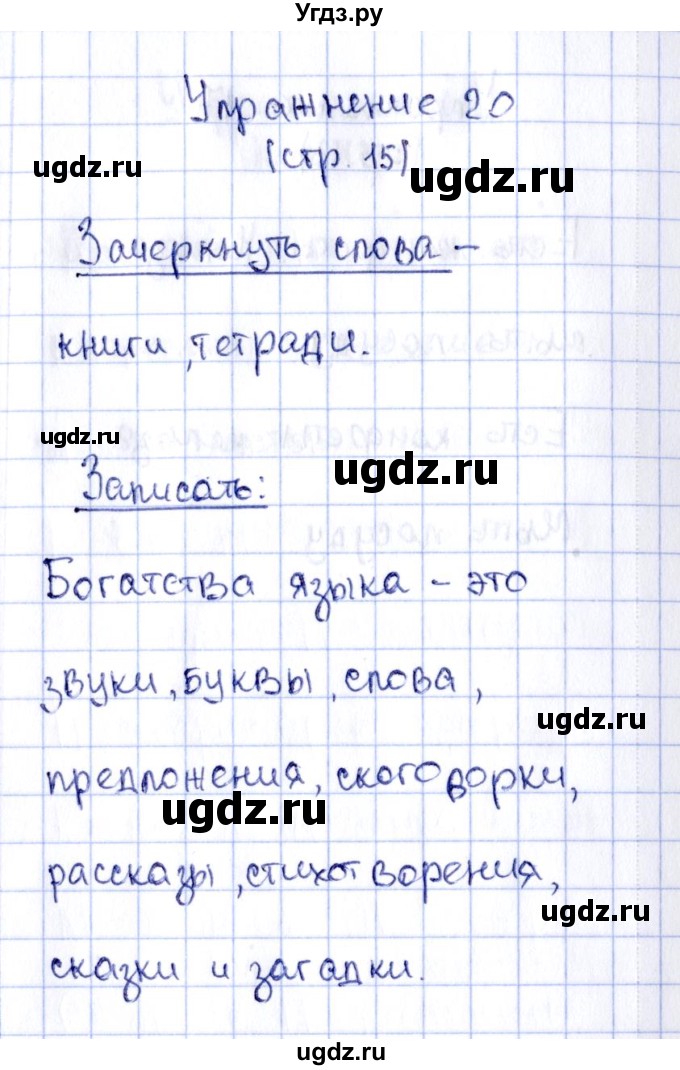 Угдз.ру
Упражнение 20
ugdz.ru (стр. 15) ugdz.ru
Зачеркнуть слова –
книги, тетради.
ugdz.ru
ugdz.ru
Записать:
Богатства языка – это
звуки, буквы, слова,
ugdz.ru
предложения, скоговорки,
ugdz.ru
рассказы, стихотворения,
ugdz.ru
сказки и загадки.
ugdz.ru